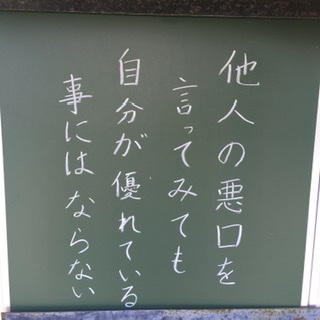 他人の悪口を
言ってみても
自分が優れている
事にはならない